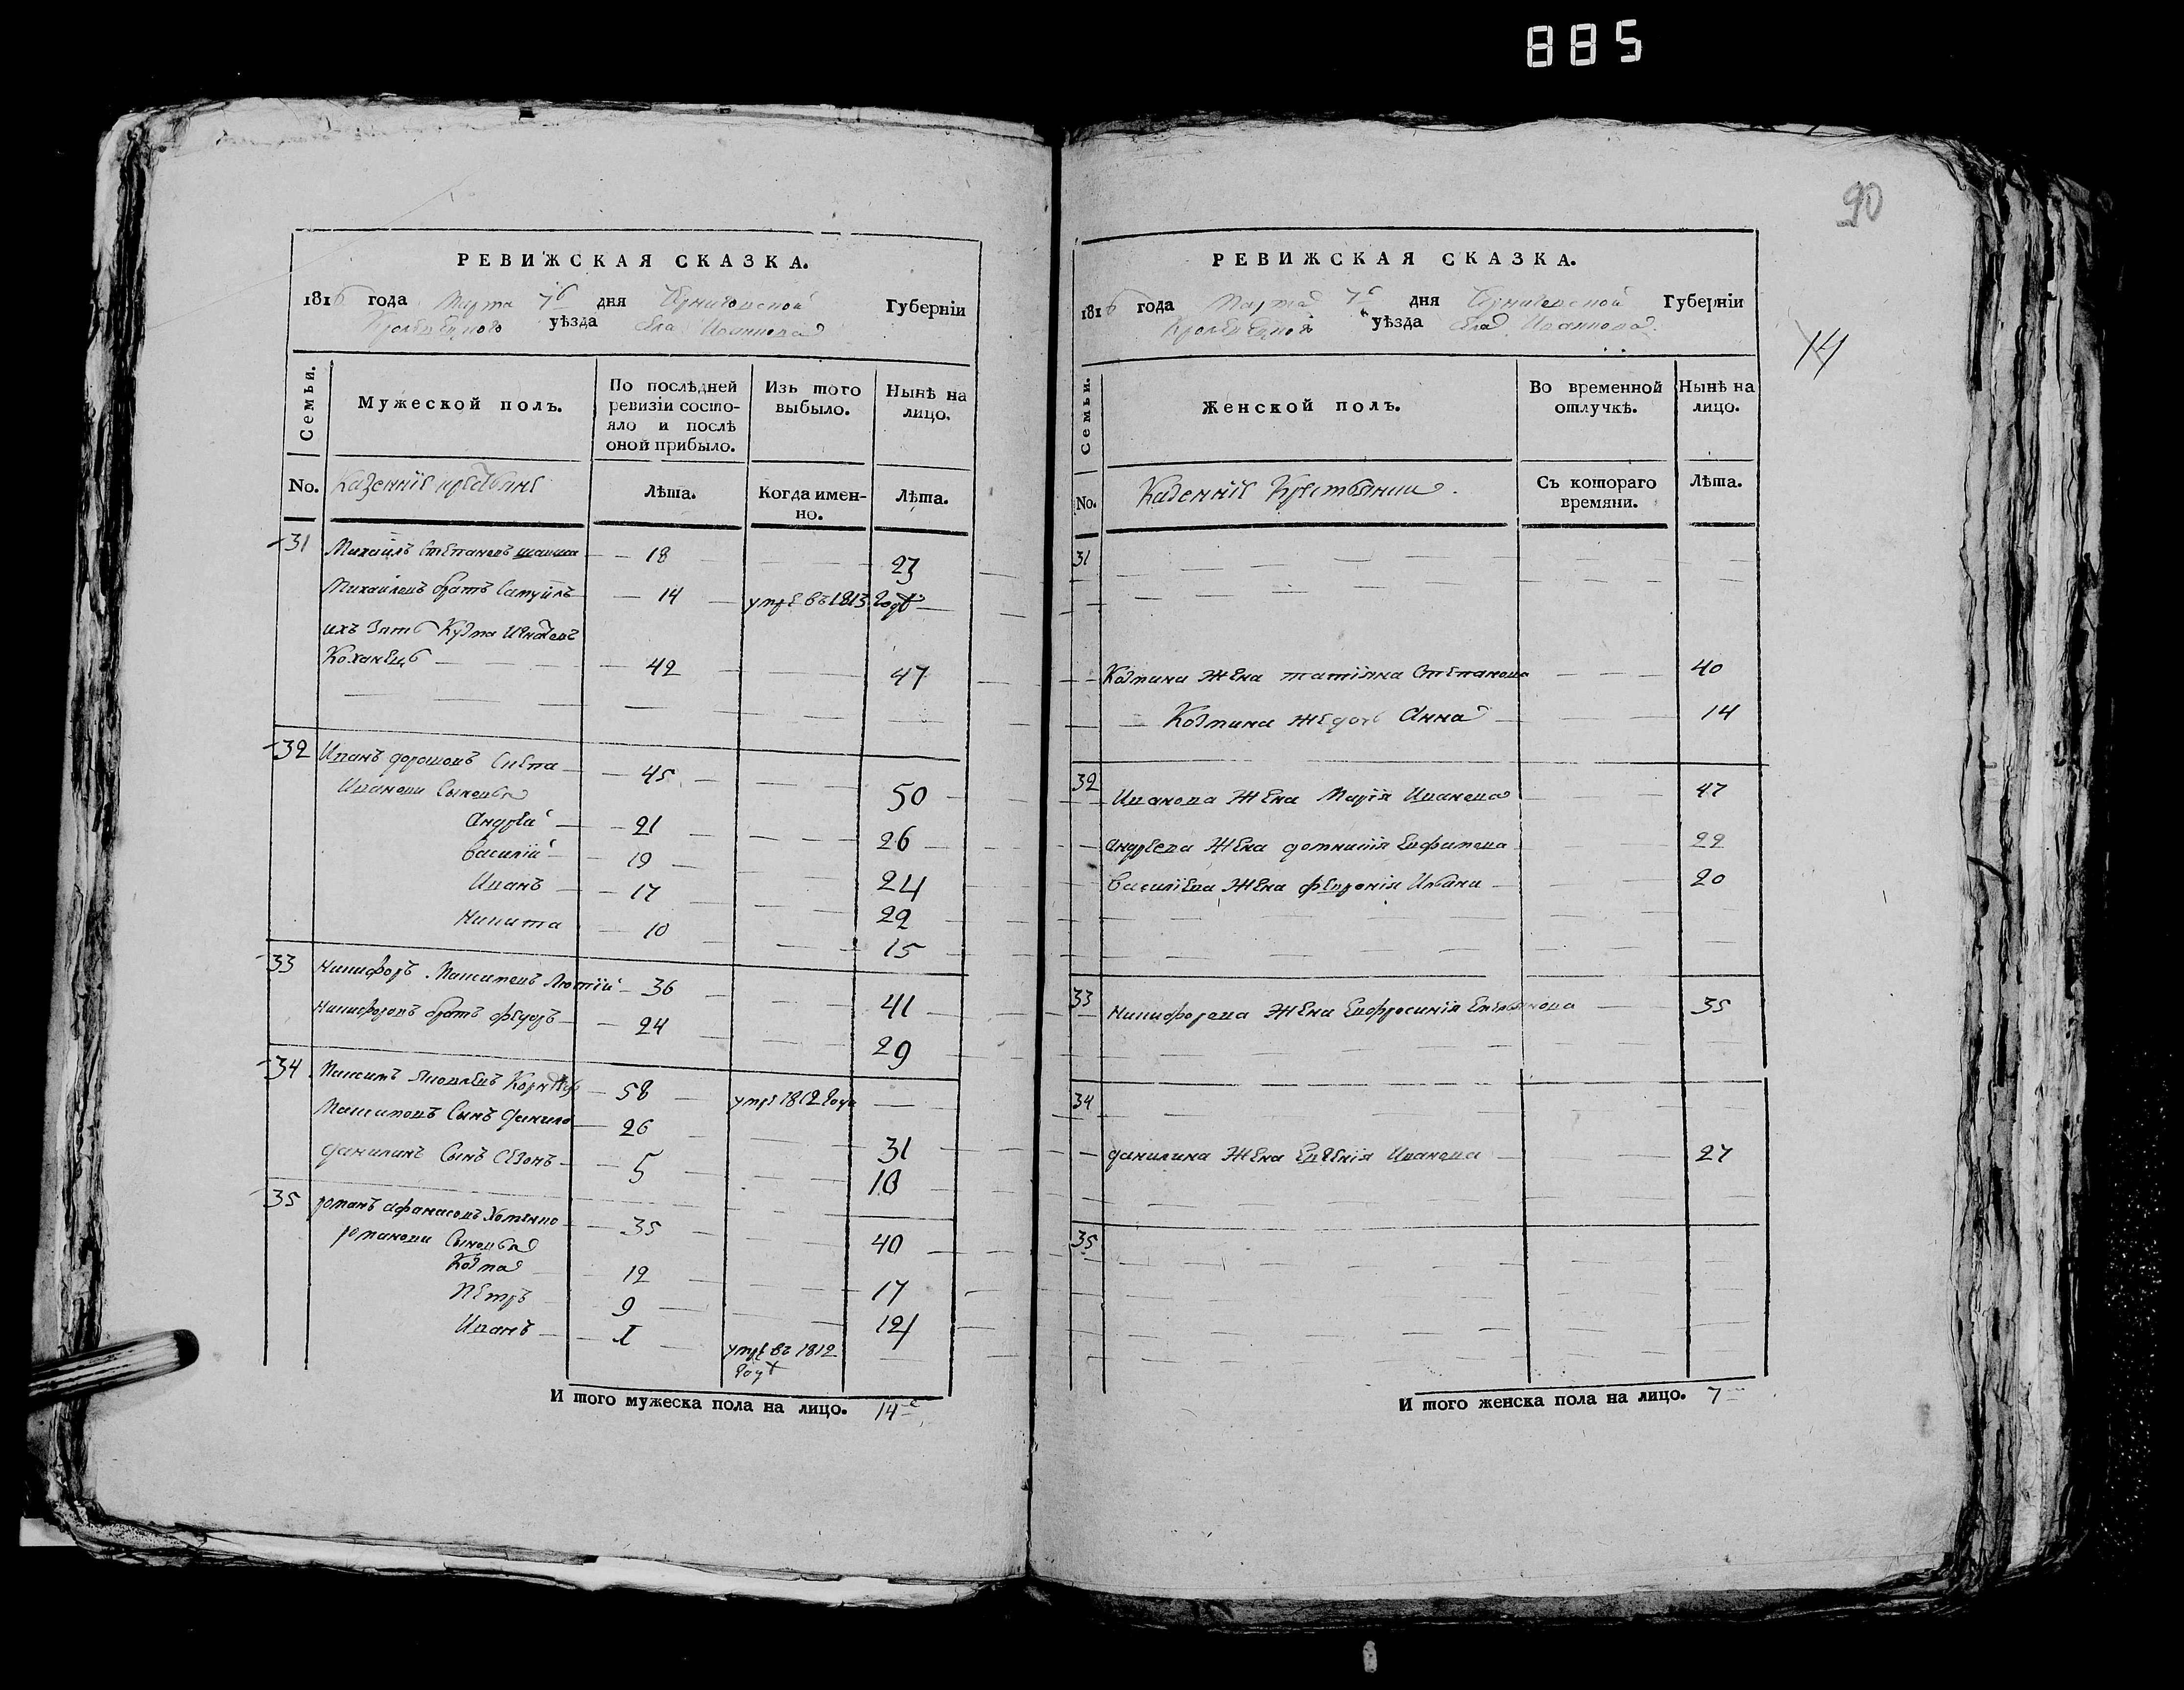 885
90
14
РЕВИЖСКАЯ СКАЗКА.
1816 года Марта 7го дня Черниговской Губерніи
Кролевецкого уѣзда села Иванкова
Семьи.
Мужеской полъ.
По послѣдней ревизіи состо-
яло и послѣ
оной прибыло.
Изъ того выбыло.
Нынѣ на лицо.
No.
Казенніе крестьяне
Лѣта.
Когда имен-
но.
Лѣта.
31 Михаилъ Степановъ 18 23
Михаиловъ братъ Самуилъ 14 умре въ 1813 годѣ
ихъ зять Кузма
Коханецъ 42 47
32 Иванъ дорошовъ 45 50
Иванови Сыновья
Андрей 21 26
василій 19 24
Иванъ 17 22
Никита 10 15
33 Никифоръ Максимовъ Лютій 36 41
Никифоровъ братъ федоръ 24 29
34 Максимъ Яковлевъ 58 умре 1812 года
Максимовъ Сынъ данило 26 31
данилинъ Сынъ Сезонъ 5 10
35 романъ афанасовъ Хоменко 35 40
романови Сыновья
Козма 12 17
Петръ 9 14
Иванъ I умре въ 1812
годѣ
И того мужеска пола на лицо. 14
РЕВИЖСКАЯ СКАЗКА.
1816 года Марта 7го дня Черниговской Губерніи
Кролевецкого уѣзда села Иванкова
Семьи.
Женской полъ.
Во временной отлучкѣ.
Нынѣ на лицо.
No.
Казенніе Крестьянки.
Съ котораго времяни.
Лѣта.
31
Козмина жена татіяна Степанова 40
Козмина дочь Анна 14
32 Иванова жена Марія Иванова 47
андреева жена домникія Евфимова 22
василіева жена февронія Ильина 20
33 Никифорова жена Евфросинія Емельянова 35
34
данилина жена Евгенія Иванова 27
35
И того женска пола на лицо. 7